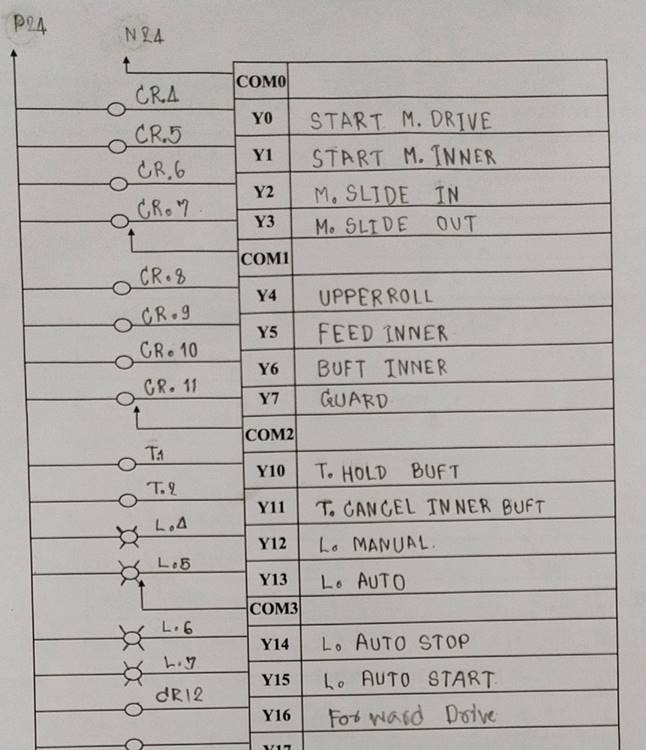 P24
N24
COM0
CR.4 Y0 START M. DRIVE
CR.5 Y1 START M. INNER
CR.6 Y2 M. SLIDE IN
CR.7 Y3 M. SLIDE OUT
COM1
CR.8 Y4 UPPERROLL
CR.9 Y5 FEED INNER
CR.10 Y6 BUFT INNER
CR.11 Y7 GUARD
COM2
T.1 Y10 T. HOLD BUFT
T.2 Y11 T. CANCEL INNER BUFT
L.4 Y12 L. MANUAL.
L.5 Y13 L. AUTO
COM3
L.6 Y14 L. AUTO STOP
L.7 Y15 L. AUTO START
CR12 Y16 Forward Drive
Y17